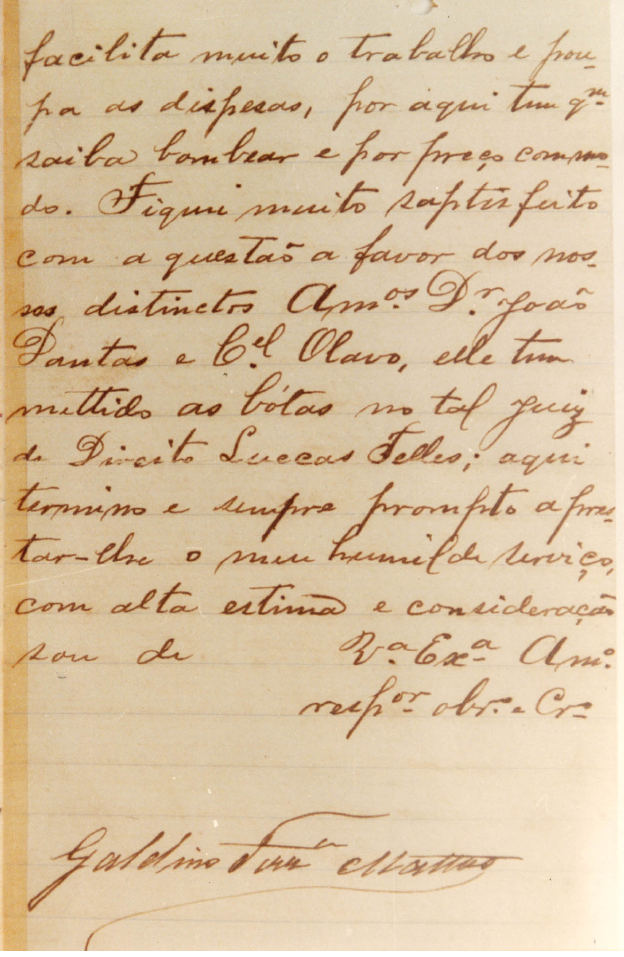 facilita muito o trabalho e pou-
pa as dispesas, por aqui tem q.m
saiba bombear e por preço commo-
do. Fiquei muito saptisfeito
com a questaõ a favor dos nos-
sos distinctos Am.os D.r Joaõ
Dantas e C.el Olavo, elle tem
mettido as bótas no tal Juiz
de Direito Luccas Felles; aqui
termino e sempre prompto a pres-
tar-lhe o meu humilde serviço,
com alta estima e consideraçaõ
sou de V.a Ex.a Am.o
resp.or obr.o e Cr.o
Galdino Ferr.a Mattos